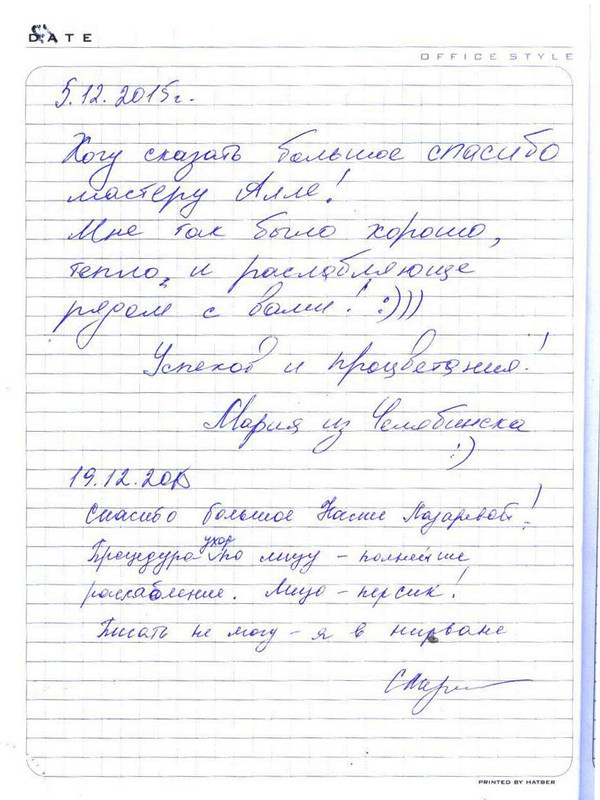 DATE
OFFICE STYLE
5.12.2015г.
Хочу сказать большое спасибо
мастеру Алле!
Мне так было хорошо,
тепло, и расслабляюще
рядом с вами! :)))
Успехов и процветания!
Мария из Челябинска
:)
19.12.2015
Спасибо большое Насте Лазаревой!
уход
Процедура по лицу – полнейшее
расслабление. Лицо – персик!
Писать не могу – я в нирване
PRINTED BY HATBER